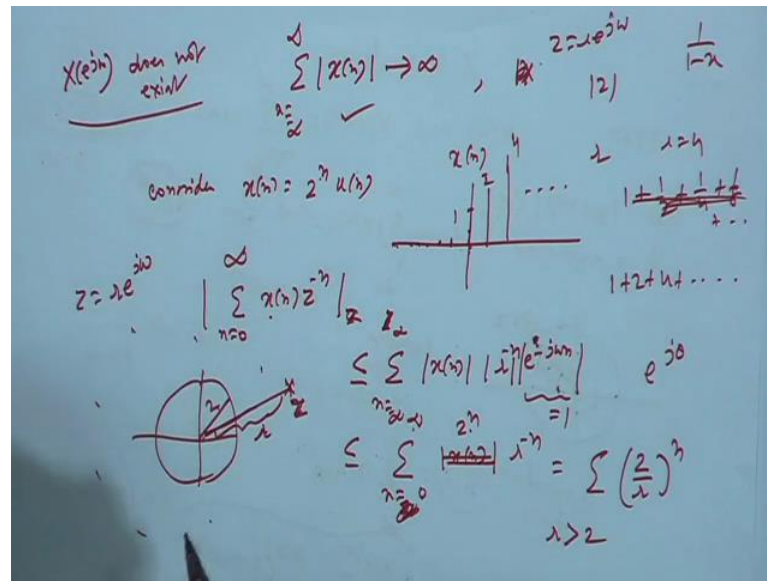 X(e^jω) does not exist
∞ Σ n=-∞ |x(n)| → ∞ , z = re^jω 1/(1-r)
|z|
consider x(n) = 2^n u(n)
x(n) 1 2 4 ....
r r=4
1 + 1/2 + 1/4 + 1/8 + ...
1+2+4+ ....
z = re^jω | ∞ Σ n=0 x(n) z^-n |
≤ Σ |x(n)| |r^-n| |e^-jωn| e^jθ
=1
2 r z
≤ ∞ Σ n=0 |x(n)| 2^n r^-n = Σ (2/r)^n
r>2